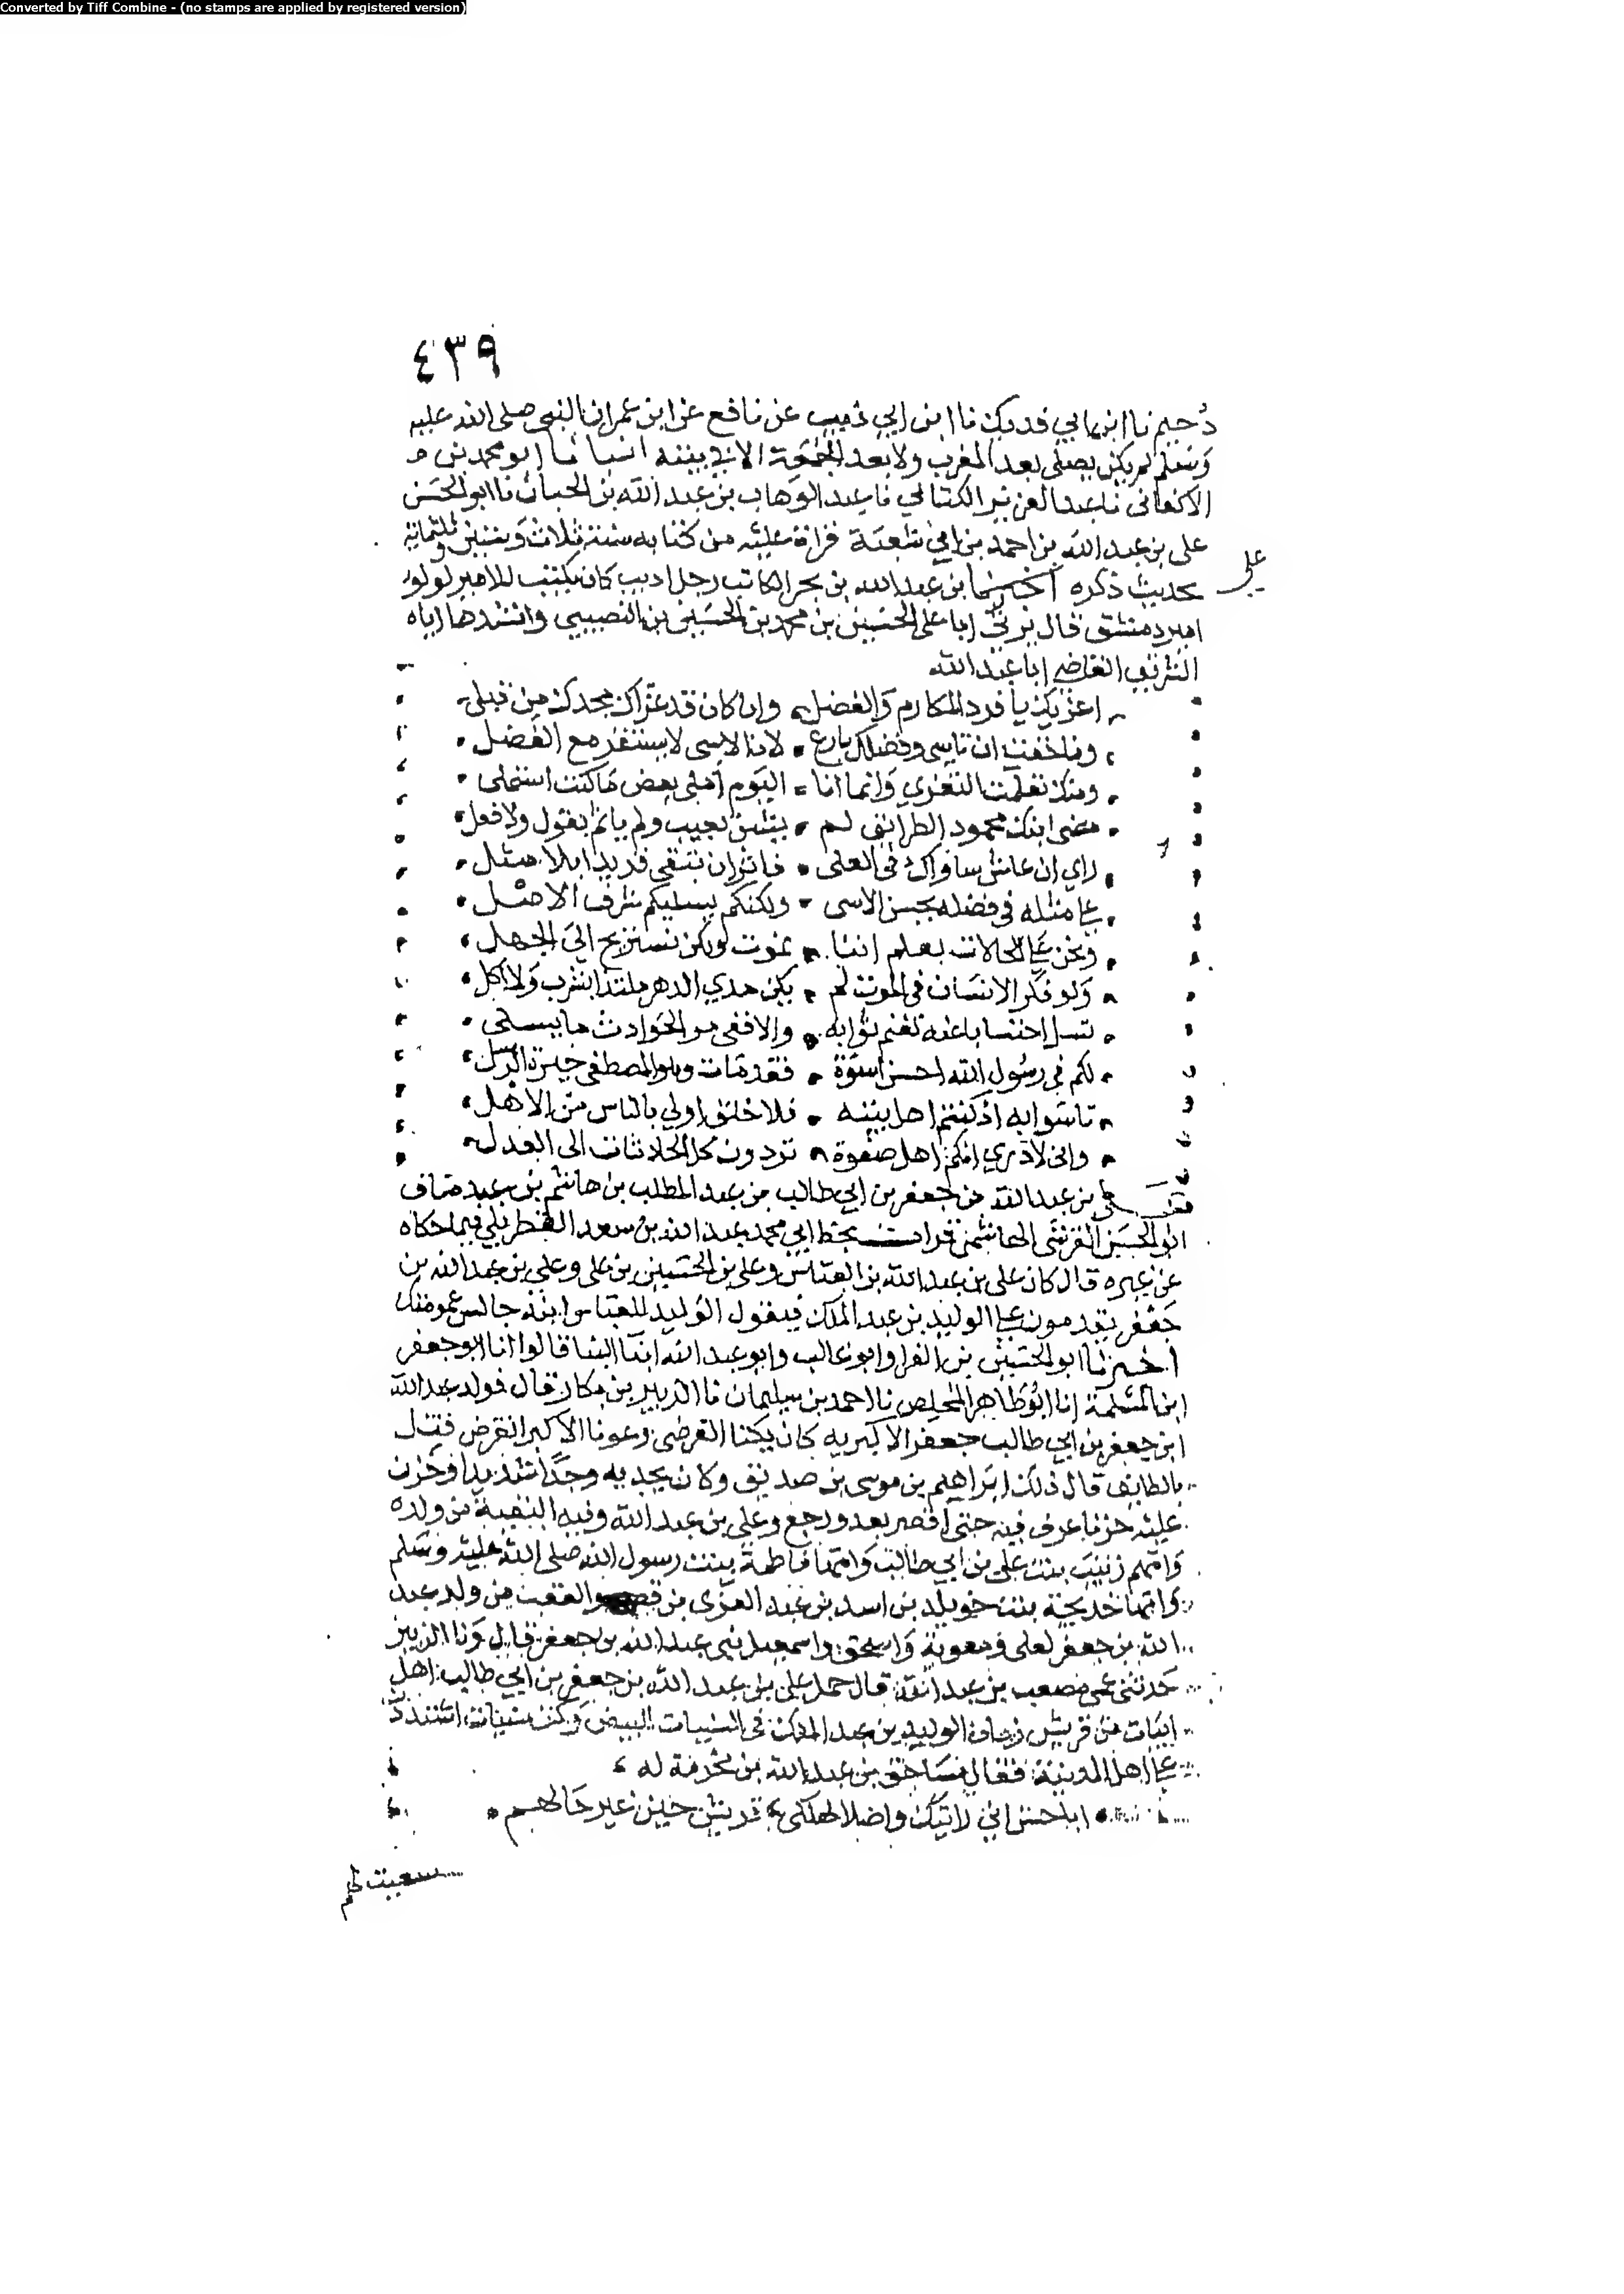 Converted by Tiff Combine - (no stamps are applied by registered version)
٤٣٩
دُحيم نا ابن ابي فديك نا ابن ابي ذيب عن نافع عن ابن عمر ان النبي صلى الله عليه
وَسَلم لم يكن يصلى بعد المغرب ولا بعد الجمعة الا في بيته انبانا ابو محمد بن
الاكفانى نا عبد العزيز الكتاني نا عبد الوهاب بن عبد الله بن الحبان نا ابو الحسَن
على بن عبد الله بن احمد بن ابي شعبَة قراة عليه من كتابه سنة ثلاث وَستين وثلثمائة
بحديث ذكره اخبرنا ابن عبد الله بن بحر الكاتب رجل اديب كان يكتب للامير لولو
على
امير دمشق قال يرثي ابا على الحسَين بن محمد بن الحسَين بن النصيبيى وانشدها اياه
الشريف القاضي ابا عبد الله
اعزيك يا فرد المكارم وَالفضل وان كان قد عزاك مجدك من قبلى
وما خفت ان تاسى وفضلك بارع لان الاسى لا يستقر مع الفَضل
ومنك تعلمت التعزي وَانما انا اليَوم اُملى بعض مَا كنت استملى
مضى ابنك محمود الطرايق لم يشن بعيب ولم ياثم بقول ولا فعل
راي ان عاش ساواك فى العلى فاثر ان تبقى فريدا بلا مثل
على مثله في فضله يحسن الاسى ولكنكم يسليكم شرف الاصْل
وَنحن على الحالات بعلم اننا نموت ولكن نستريح الىَ الجهل
وَلو فكر الانسَان فى الموت لم يكن مدي الدهر ملتذا بشرب وَلا اكل
تسل احتسابا عنه تغنم ثوابه والا ففى مر الحَوادث ما يسلى
لكم فى رسُول الله احسن اسوَة فقد مَات وهو المصطفى خيرة الرسل
تاسَوا به اذ كنتم اهل بيته فلا خلق اولي بالناس من الاهْل
وانى لادري انكم اهل صفوة تردون كل الحادثات الى العدل
على بن عبد الله بن جعفر بن ابي طالب بن عبد المطلب بن هاشم بن عبد مناف
ابو الحسَن القرشى الهاشمى قرات بخط ابي محمد عبد الله بن سعد القطربلي فيما حكاه
عن غيره قال كان على بن عبد الله بن العباس وعلى بن الحسَين بن على وعلى بن عبد الله بن
جَعْفر يقدمون على الوليد بن عبد الملك فيقول الوَليد للعباس ابنه جالس عمومتك
اخبرنا ابو الحسَين بن الفرا وابو غالب وابو عبد الله ابنا البنا قالوا انا ابو جعفر
ابن المسْلمة انا ابُو طَاهر المخلص نا احمد بن سليمان نا الزبير بن بكار قال فولد عبد الله
ابن جعفر بن ابي طالب جعفر الاكبر به كان يكنا القرضى وعونا الاكبر انقرض قتل
بالطايف قال ذلك ابرَاهيم بن موسى بن صديق وكان يجد به وجدًا شديدا وحَزن
عليْه حزنا عرف فيه حتى اقصر بعد ورجع وعلى بن عبد الله وفيه البقية من ولده
وَامهم زينَب بنت على بن ابي طالب وَامها فَاطمة بنت رسول الله صلى الله عليه وسَلم
وَامها خديجة بنت خويلد بن اسد بن عبد العزى بن قصى والعقب من ولد عبد
الله بن جعفر لعلى ومعوية وَاسحق واسمعيل بني عبد الله بن جعفر قال وَنا الزبير
حَدثنى عمى مصعب بن عبد الله قال حمل على بن عبد الله بن جعفر بن ابي طالب اهل
ابيات من قريش زمان الوليد بن عبد الملك فى السنيات البيض وَكنت سنيات اشتددن
على اهل المدينة فقال مسَاحق بن عبد الله بن مخرمة له
ابا حسن اني رايتك واصلا لهلكى قريش حين غير حَالهم
سعيت لهم